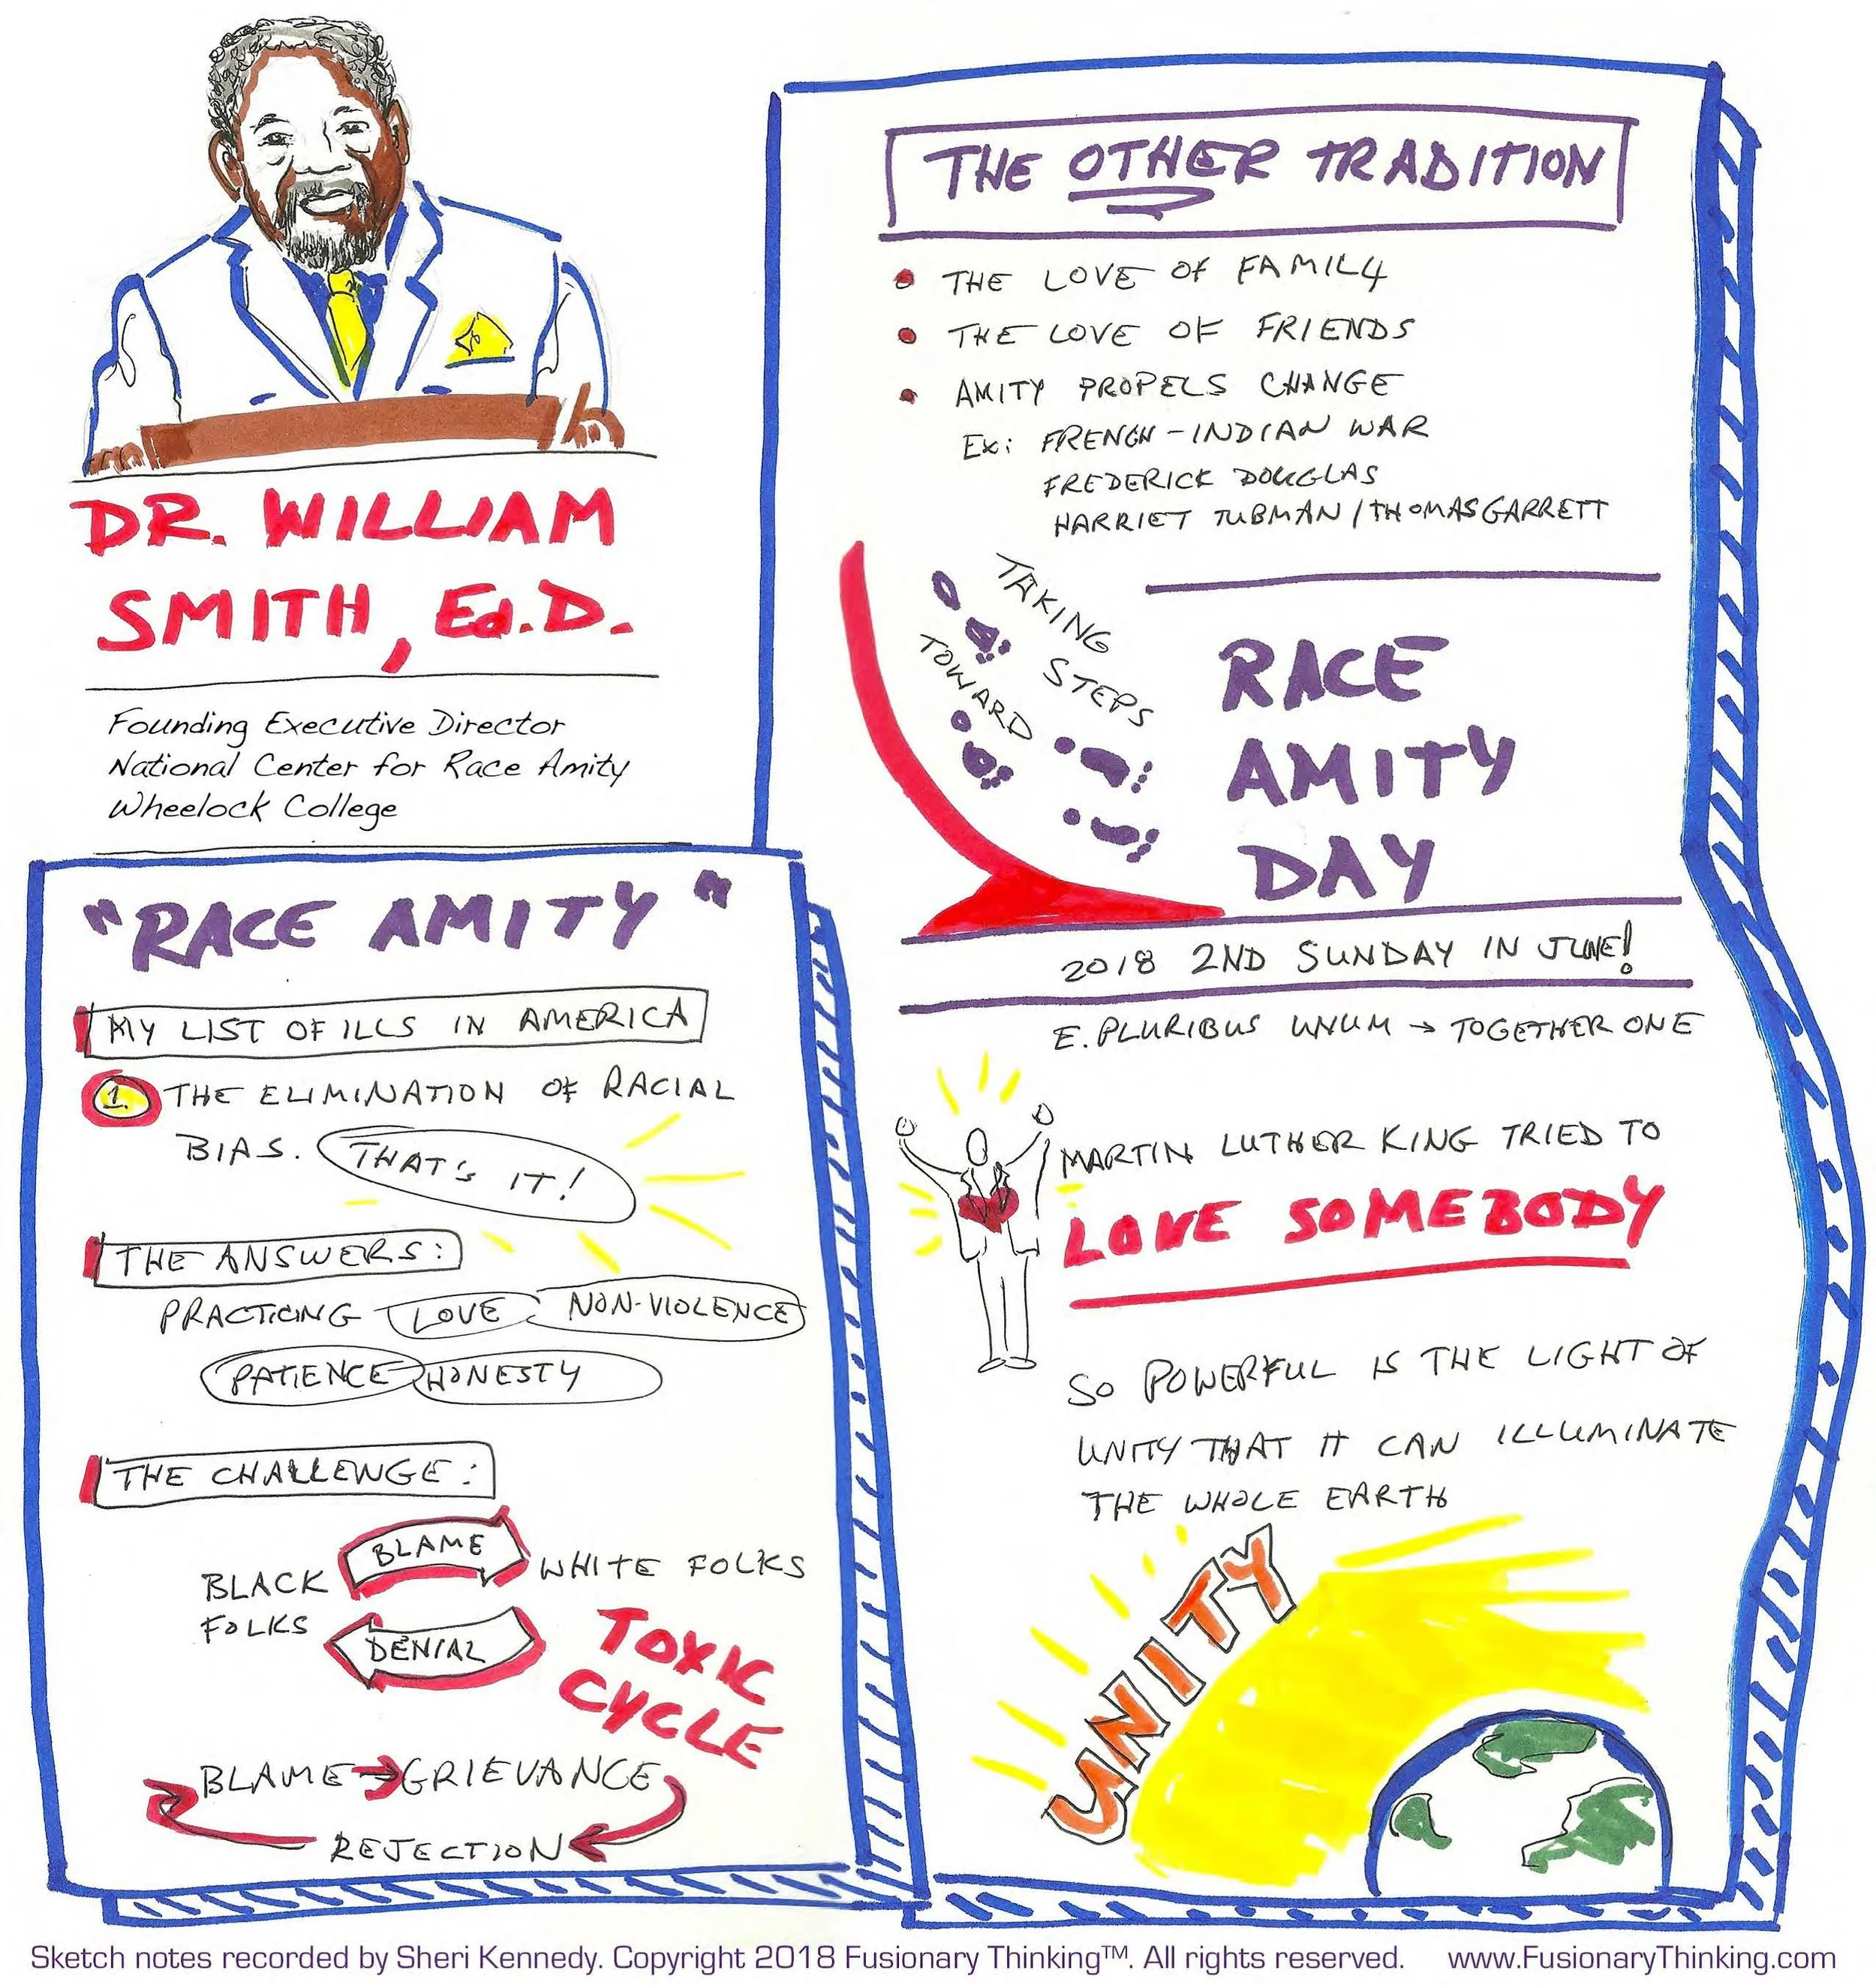 DR. WILLIAM
SMITH, Ed.D.
Founding Executive Director
National Center for Race Amity
Wheelock College
"RACE AMITY"
MY LIST OF ILLS IN AMERICA
1 THE ELIMINATION OF RACIAL
BIAS. THAT'S IT!
THE ANSWERS:
PRACTICING LOVE NON-VIOLENCE
PATIENCE HONESTY
THE CHALLENGE:
BLAME
BLACK WHITE FOLKS
FOLKS
DENIAL
TOXIC
CYCLE
BLAME → GRIEVANCE
REJECTION
THE OTHER TRADITION
• THE LOVE OF FAMILY
• THE LOVE OF FRIENDS
• AMITY PROPELS CHANGE
Ex: FRENCH-INDIAN WAR
FREDERICK DOUGLAS
HARRIET TUBMAN / THOMAS GARRETT
TAKING
STEPS
TOWARD
RACE
AMITY
DAY
2018 2ND SUNDAY IN JUNE!
E. PLURIBUS UNUM → TOGETHER ONE
MARTIN LUTHER KING TRIED TO
LOVE SOMEBODY
SO POWERFUL IS THE LIGHT OF
UNITY THAT IT CAN ILLUMINATE
THE WHOLE EARTH
UNITY
Sketch notes recorded by Sheri Kennedy. Copyright 2018 Fusionary Thinking™. All rights reserved. www.FusionaryThinking.com